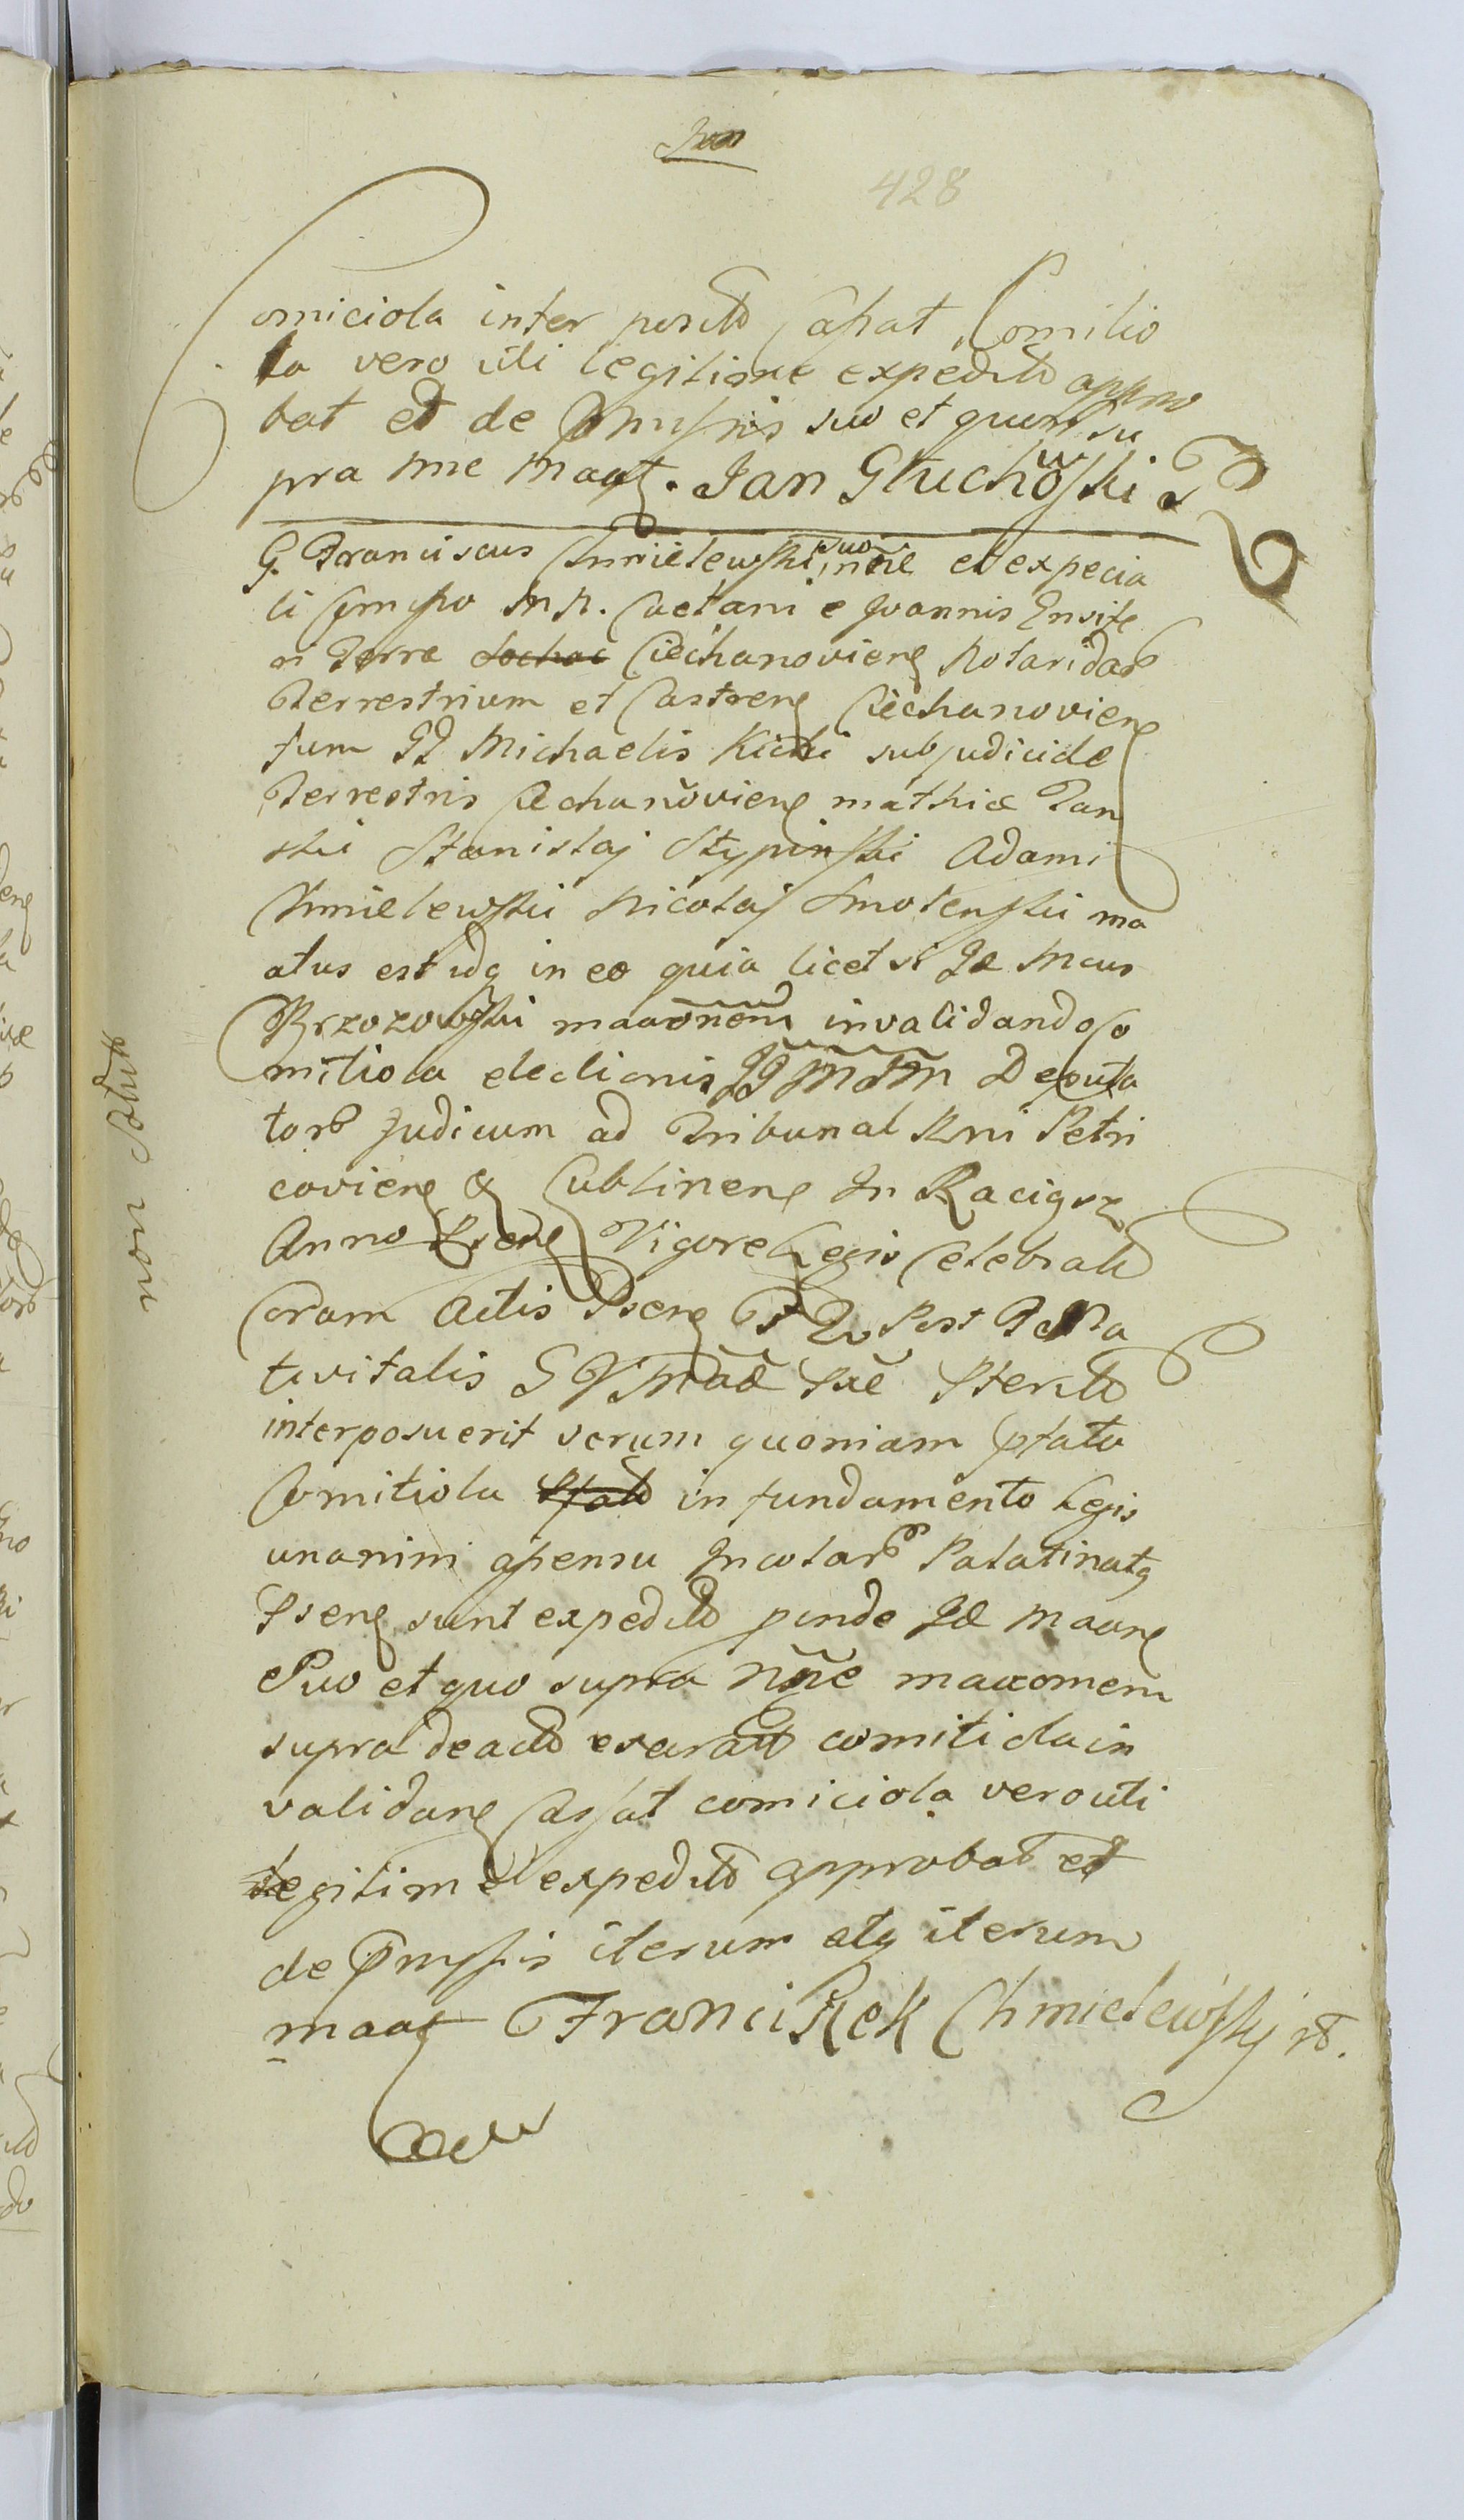 428
Comiciola inter posita Cassat Comitio
la vero uti legitime expedita appro
bat et de Pmissis suo et quo su
pra nne maatz. Jan Głuchowski
G. Franciscus Chmielewski suo nõie et ex specia
li Comisso M M. Caetani e Joannis Ensife
ri Terrae Ciechanoviens Notarior
Terrestrium et Castrens Ciechanoviens
tum GG Michaelis Kicki subjudicide
Terrestris Ciechanoviens Mathiae Tan
ski Stanislaj Stypinski Adami
Chmielewski Nicolaj Smolenski ma
atus est idq in eo quia licet si Gd Mcus
Brzozowski maãonem invalidando co
mitiola electionis JJ MM Deputa
tor Judicum ad Tribunal Rni Petri
coviens & Lublinens In Raciąsz
Anno Psens Vigore Legis Celebrata
Coram Actis Psens F 2o Post F Na
tivitatis S V Mãe
interposuerit verum quoniam ptata
Comitiola in fundamento Legis
unanimi assensu Incolar Palatinatq
Psens sunt expedita pinde Gd Maans
Suo et quo supra Nne maaonem
supra de acta exarata comitiola in
validans Cassat comiciola vero uti
legitime expedita approbat et
de Pmissis iterum atq iterum
maat Franciszek Chmielewsky
non solvit